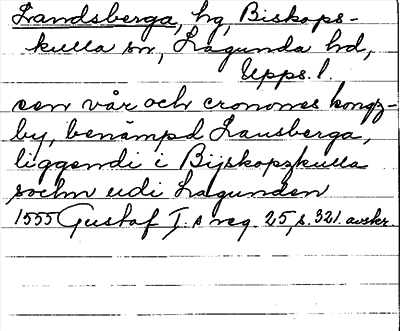 Landsberga, hg, Biskops-
kulla sn, Lagunda hd,
Upps. l.
een vår och cronones kongz-
by, benämpd Lansberga,
liggendi i Bijskopzkulla
sochn udi Lagunden
1555 Gustaf I. s reg. 25, s. 321. avskr.